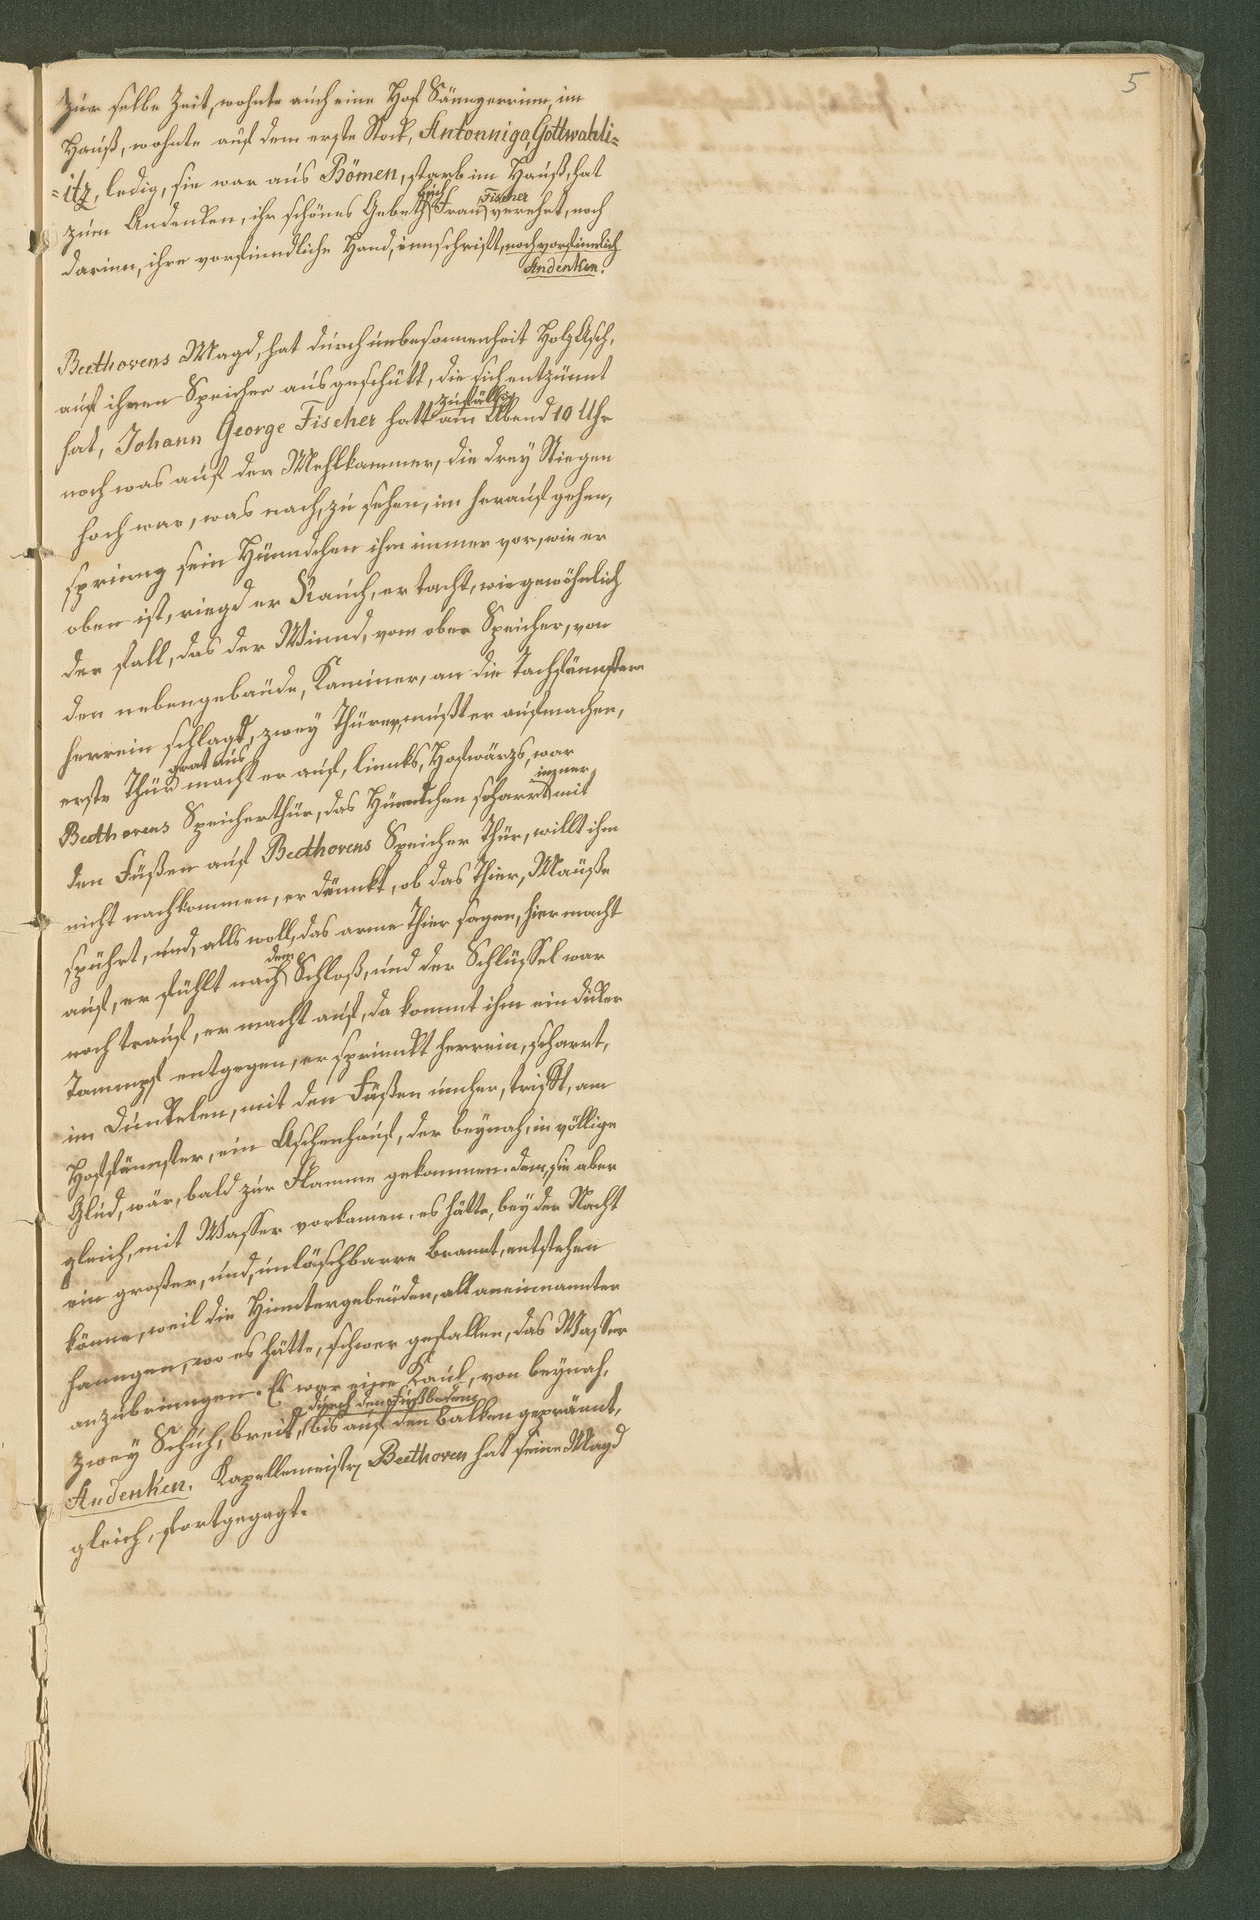 5
Zur selbe Zeit, wohnte auch eine Hof Sänngerrinn, im
Hauß, wohnte auf dem erste Stock, Antonniga, Gottwahli=
=itz, ledig, sie war aus Bömen, starb im Hauß, hat
zum Andenken, ihr schönes Gebeth buch Frau Fischer verehrt, noch
darinn, ihre vorfinndliche Hand, innschrift, noch vorfinnlich
Andenken.
Beethovens Magd, hat durch unbesonnenheit Holz Asch,
auf ihren Speicher ausgeschütt, die sich entzünnt
hat, Johann George Fischer hatt zufällig am Abend 10 Uhr
noch was auf der Mehlkammer, die drey Stiegen
hoch war, was nach, zu sehen, im herauf gehen,
sprinng sein Hünndchen ihm immer vor, wie er
oben ist, riegd er Rauch, er tacht, wie gewöhnlich
der fall, das der Winnd, vom ober Speicher, von
den nebengebäude, Kaminer, an die Tachfännstern
herrein schlagt, zwey Thüren, mußt er aufmachen,
erste Thür grat aus macht er auf, linnks, Hofwärzs, war
Beethovens Speicherthür, das Hünndchen scharrt immer, mit
den Füßen auf Beethovens Speicher Thür, willt ihm
nicht nachkommen, er dännkt, ob das Thier, Mäuße
spührt, und, alls woll, das arme Thier sagen, hier macht
auf, er fühlt nach dem Schloß, und der Schlüssel war
noch trauf, er macht auf, da kommt ihm ein dicker
Tammpf entgegen, er sprinnkt herrein, scharrt,
im Dunkelen, mit den Füßen umher, trifft, am
Hoffännster, ein Aschenhauf, der beynah, in völlige
Glud, wär, bald zur Flamme gekommen. dem, sie aber
gleich, mit Wasser vorkamen. es hätte, bey der Nacht
ein großer, und, unlöschbarre Brannt, entstehen
könne, weil die Hinntergebeüden, all aneinnannter
hanngen, wo es hätte, schwer gefallen, das Wasser
anzubrinngen. Es war eine Kaul, von beynah,
zwey Schuh, breit, durch den Fußbodem bis auf den balken geprännt,
Andenken. Kapellemeistr, Beethoven hat seine Magd
gleich, fortgegagt.